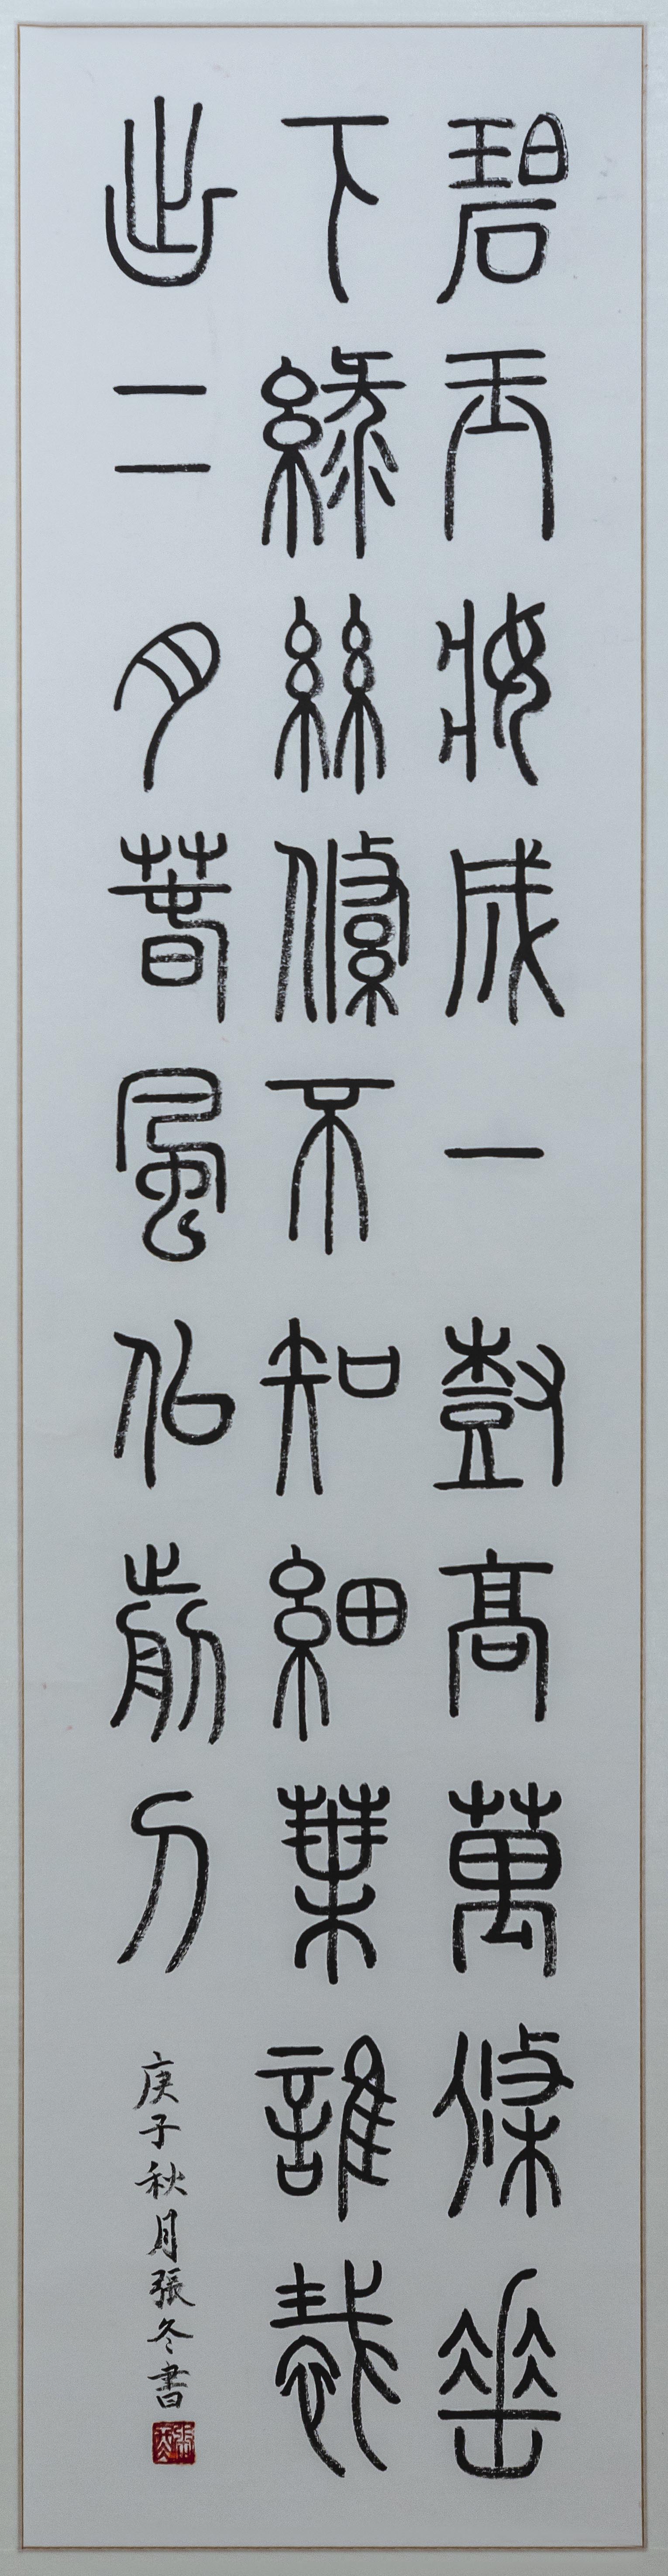 碧玉妝成一樹高萬條垂
下綠絲絛不知細葉誰裁
出二月春風似剪刀
庚子秋月張冬書